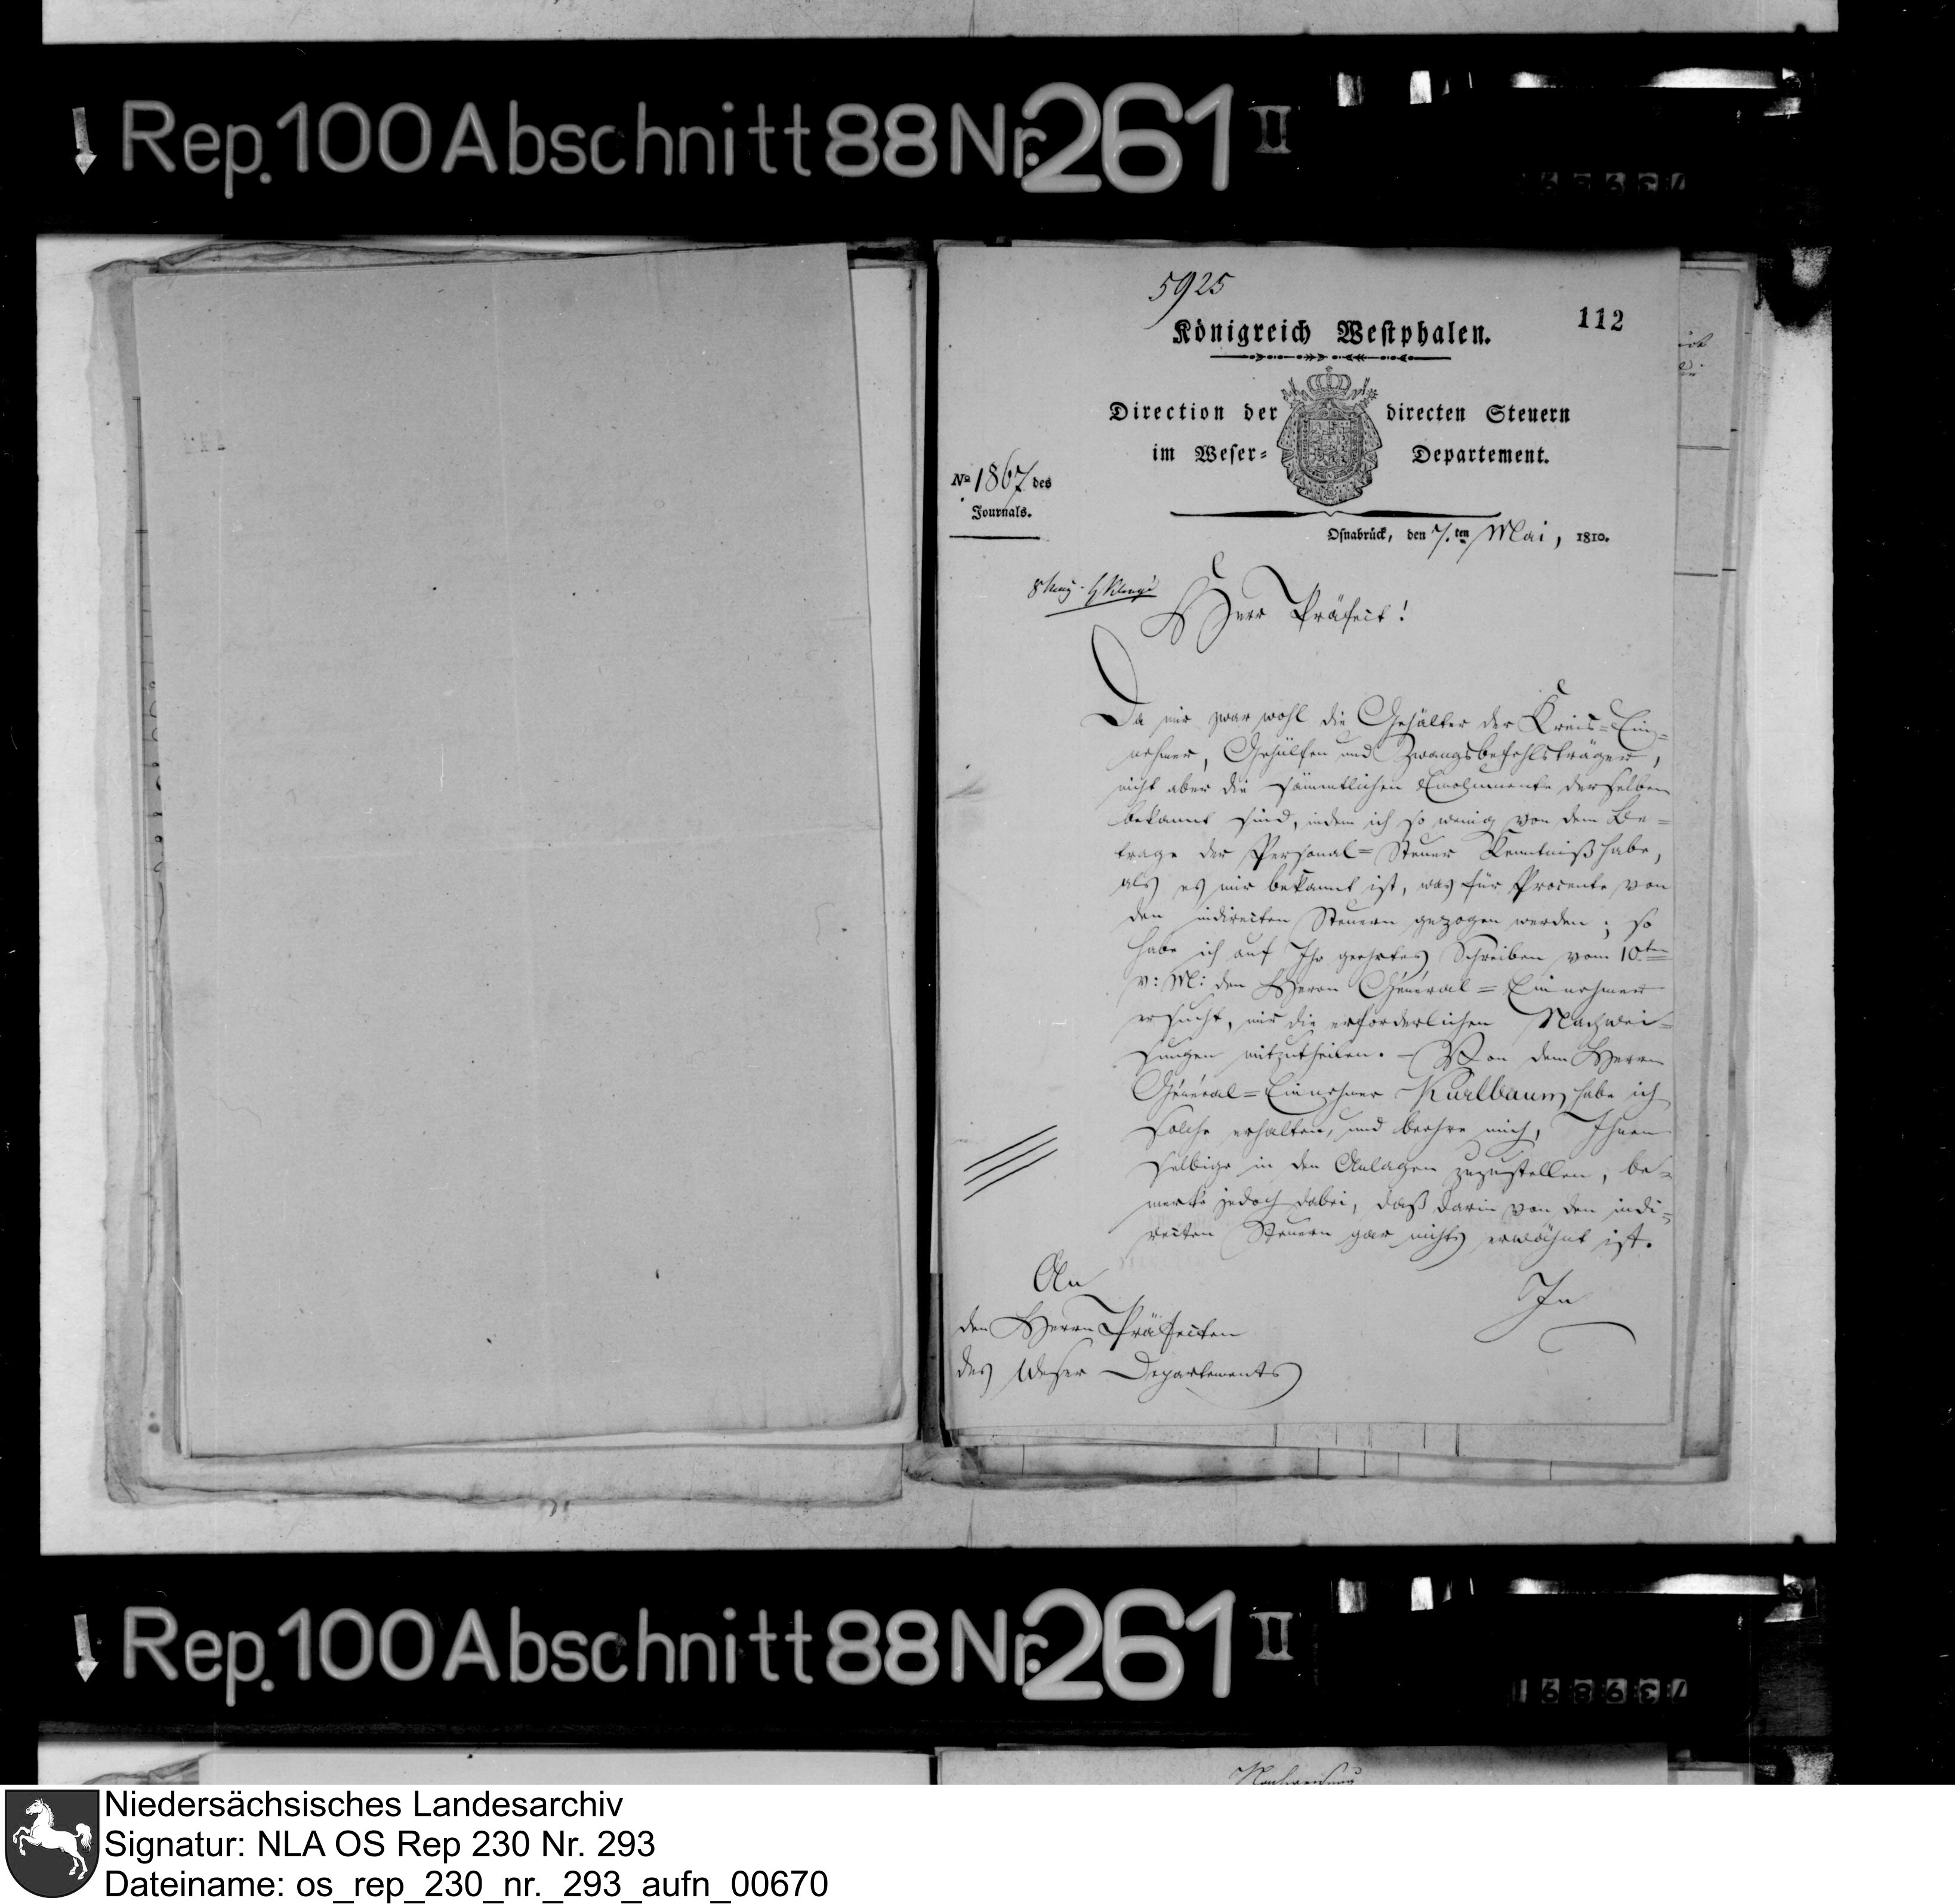 Rep. 100 Abschnitt 88 Nr. 261 II
5925
112
Königreich Westphalen.
Direction der directen Steuern
im Weser- Departement.
No 1867 des
Journals.
Osnabrück, den 7.ten Mai, 1810.
Herr Präfect!
Da mir zwar wohl die Gehälter der Kreis-Ein-
nehmer, Gehülfen und Zwangsbefehlsträger,
nicht aber die sämmtlichen Emolumente derselben
bekannt sind, indem ich so wenig von dem Be-
trage der Personal-Steuer Kenntniß habe,
als es mir bekannt ist, was für Procente von
den indirecten Steuern gezogen werden; so
habe ich auf Ihr geehrtes Schreiben vom 10ten
v: M: den Herrn Général-Einnehmer
ersucht, mir die erforderlichen Nachwei-
sungen mitzutheilen. – Von dem Herrn
Général-Einnehmer Kurlbaum habe ich
solche erhalten, und beehre mich, Ihnen
selbige in den Anlagen zuzustellen, be-
merke jedoch dabei, daß darin von den indi-
recten Steuern gar nichts erwähnt ist.
An
In
den Herrn Präfecten
des Weser Departements
Rep. 100 Abschnitt 88 Nr. 261 II
Nachweisung
Niedersächsisches Landesarchiv
Signatur: NLA OS Rep 230 Nr. 293
Dateiname: os_rep_230_nr._293_aufn_00670